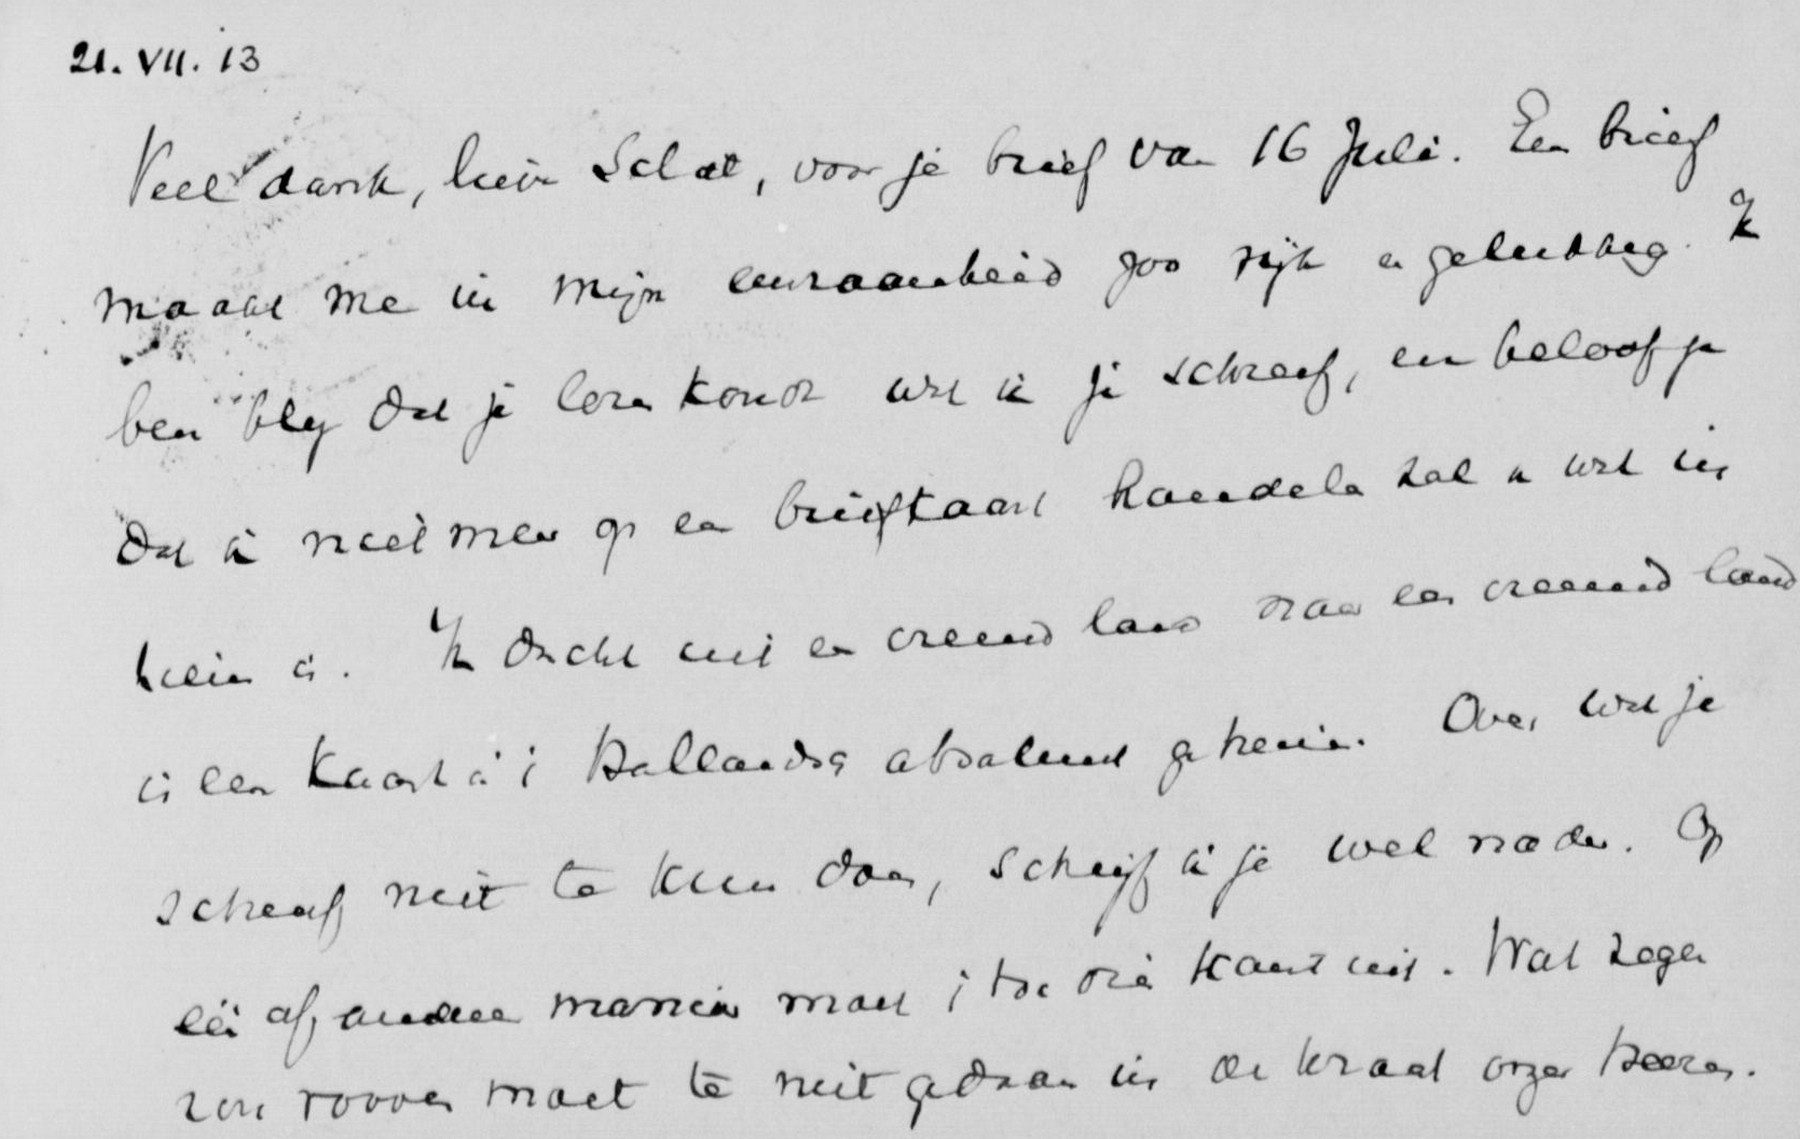 21. VII. 13
Veel dank, lieve Schat, voor je brief van 16 Juli. Een brief
maakt me in mijn eenzaamheid zoo rijk en gelukkig. Ik
ben bly dat je lezen kondt wat ik je schreef, en beloof je
dat ik niet meer op een briefkaart handelen zal n wat in
is. Ik dacht uit een vreemd land naar een vreemd land
is een kaart in 't Hollandsch absoluut geheim. Over wat je
schreef niet te kunnen doen, schrijf ik je wel nader. Op
een of andere manier moet 't toch die kant uit. Wat
moet te niet gedaan in de onzer Heeren.